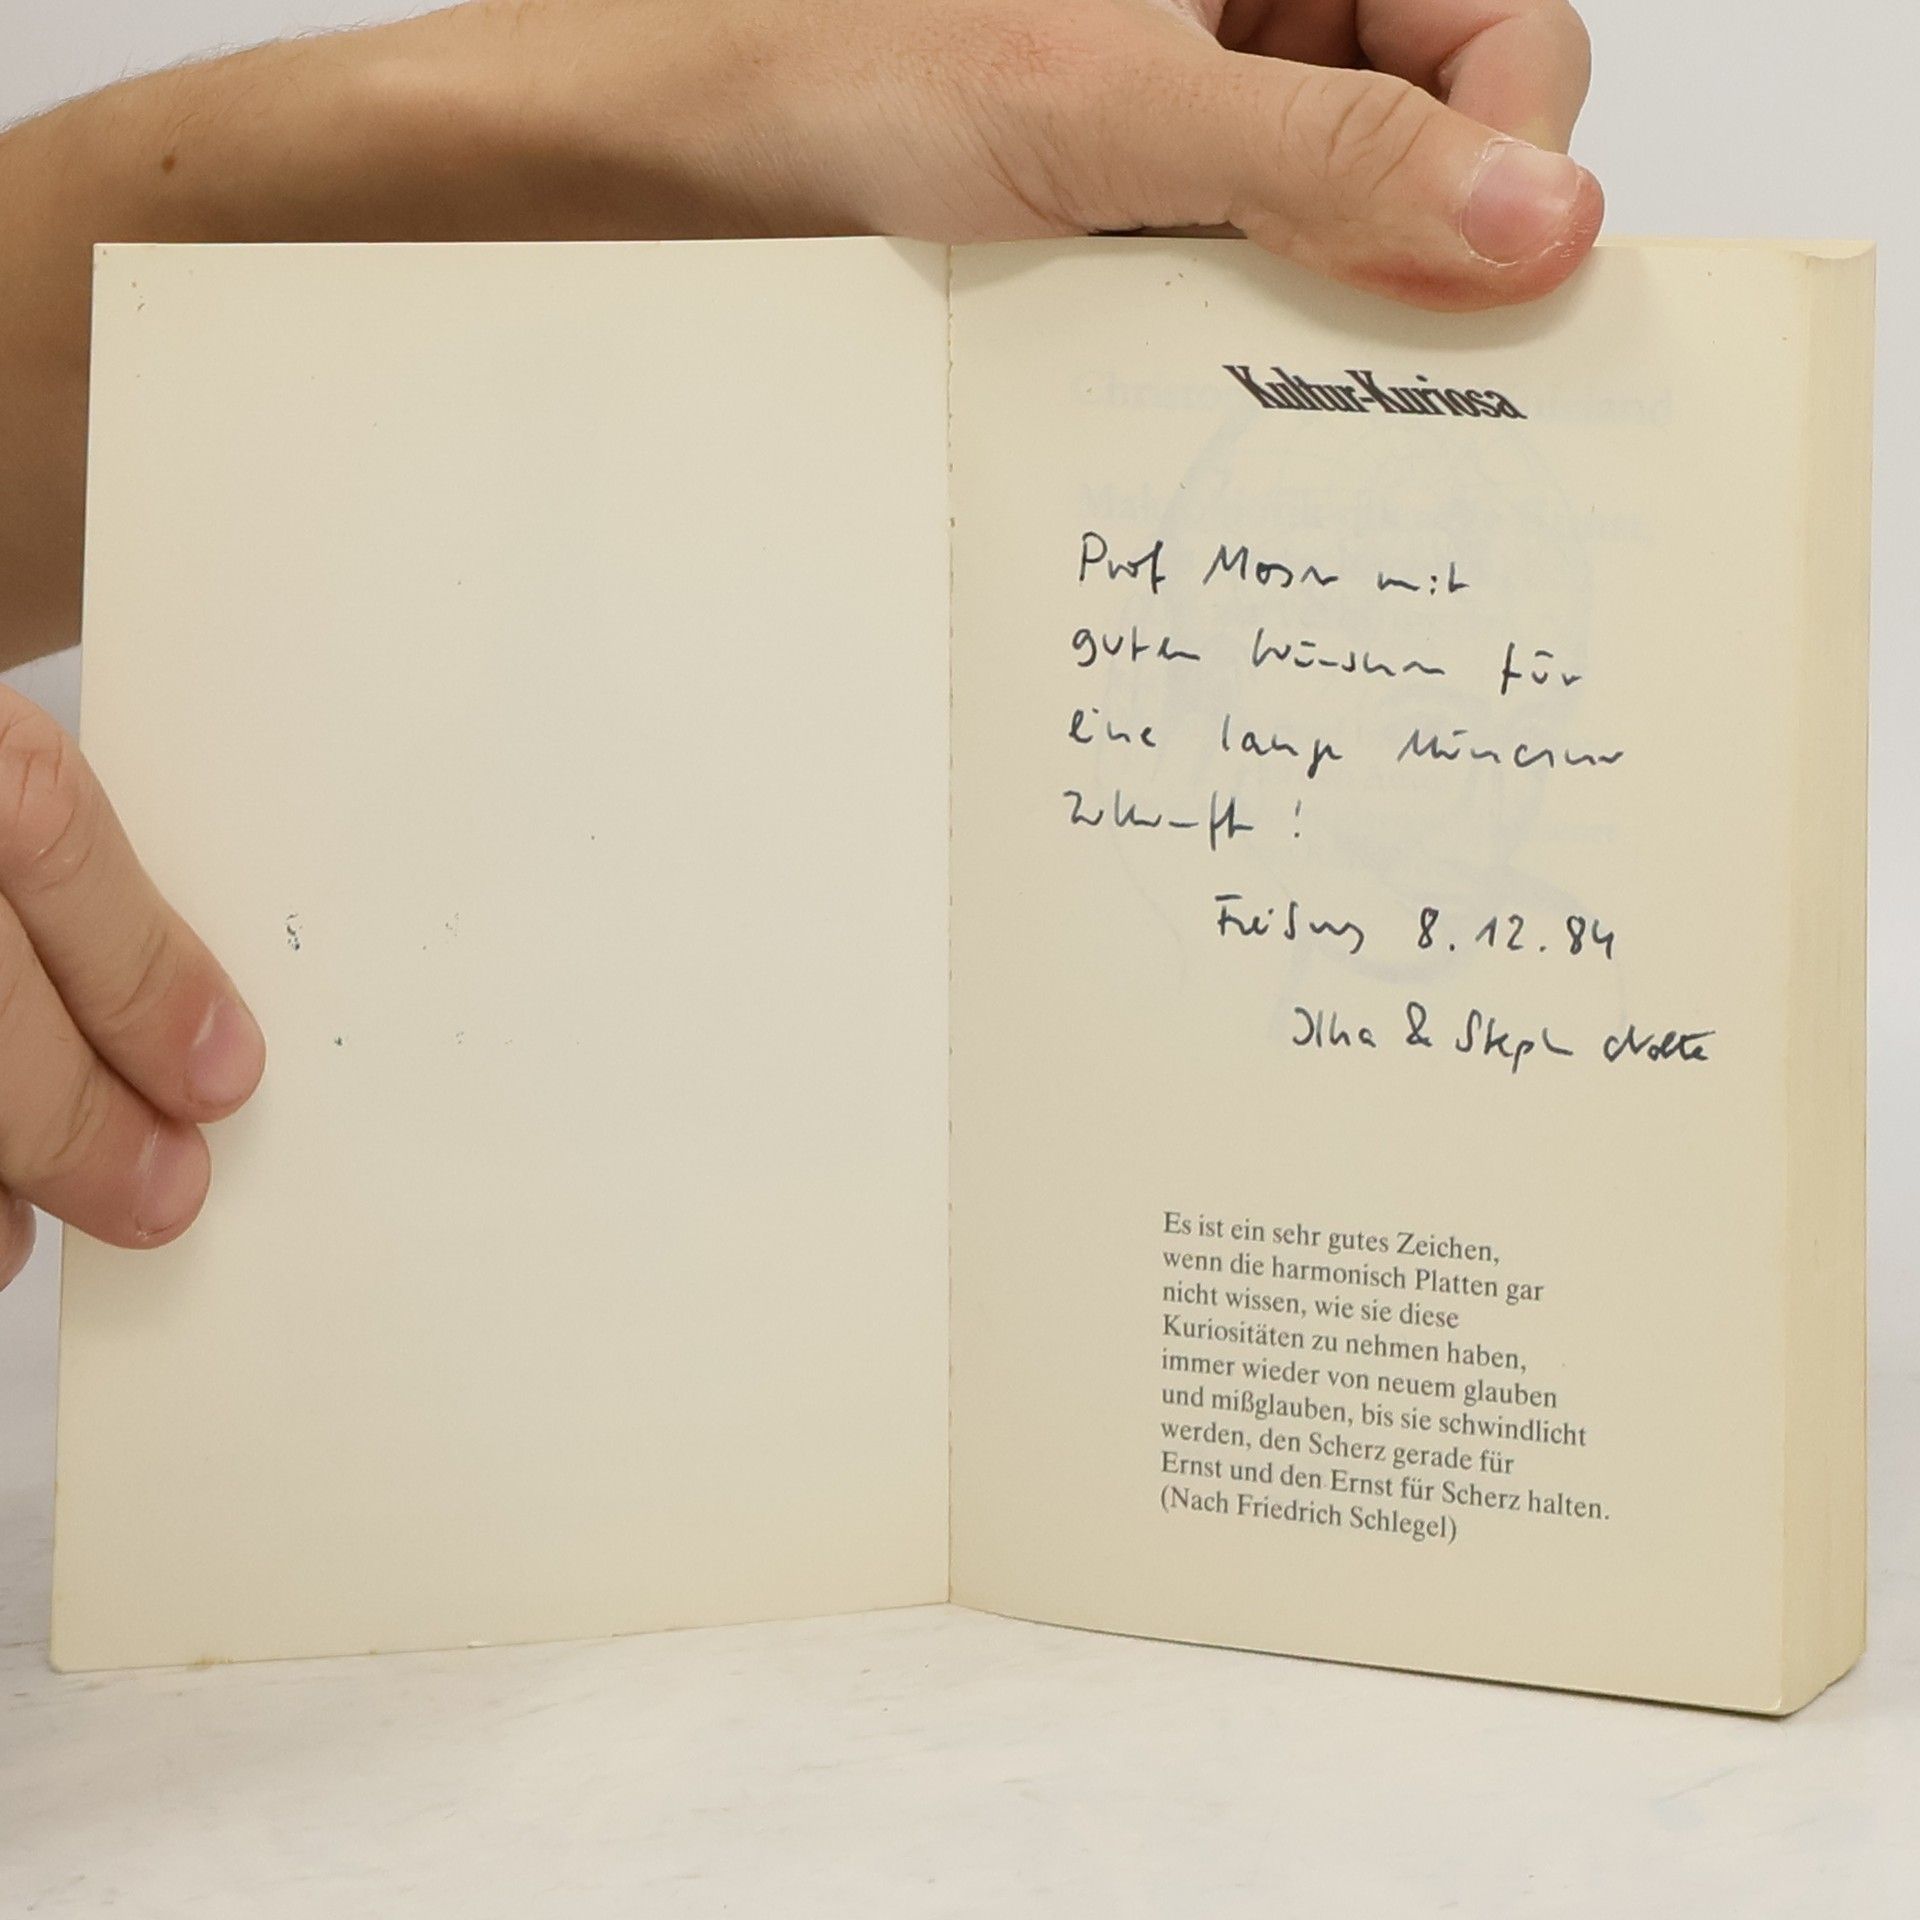 Kultur-Kuriosa
Prof Moser mit
guten Wünschen für
eine lange Münchner
Zukunft!
Freising 8.12.84
& Stephan Nolte
Es ist ein sehr gutes Zeichen,
wenn die harmonisch Platten gar
nicht wissen, wie sie diese
Kuriositäten zu nehmen haben,
immer wieder von neuem glauben
und mißglauben, bis sie schwindlicht
werden, den Scherz gerade für
Ernst und den Ernst für Scherz halten.
(Nach Friedrich Schlegel)